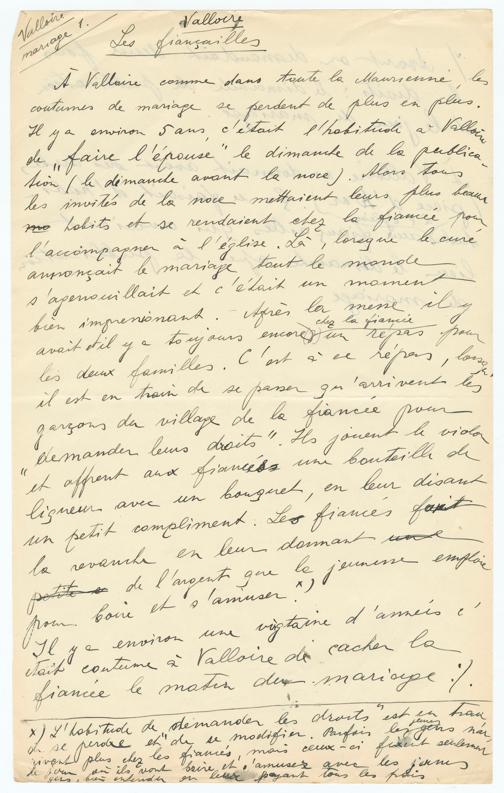 Valloire
mariage 1.
Valloire
Les fiançailles
À Valloire comme dans toute la Maurienne, les
coutumes de mariage se perdent de plus en plus.
Il y a environ 5 ans, c'était l'habitude à Valloire
de "faire l'épouse" le dimanche de la publica-
tion (le dimanche avant la noce). Alors tous
les invités de la noce mettaient leurs plus beaux
habits et se rendaient chez la fiancée pour
l'accompagner à l'église. Là, lorsque le curé
annonçait le mariage tout le monde
s'agenouillait et c'était un moment
bien impressionant. - Après la messe il y
avait et il y a toujours encore chez la fiancée un répas pour
les deux familles. C'est à ce répas, lorsqu'
il est en train de se passer qu'arrivent les
garçons du village de la fiancée pour
"demander leurs droits". Ils jouent le violon
et offrent aux fiancés une bouteille de
liqueur avec un bouquet, en leur disant
un petit compliment. Les fiancés font
la revanche en leur donnant
de l'argent que la jeunesse emploie
pour boire et s'amuser. x)
Il y a environ une vigtaine d'années c'
était coutume à Valloire de cacher la
fiancée le matin du mariage :/.
x) L'habitude de "demander les droits" est en train
de se perdre et de se modifier. Parfois les jeunes gens n'ar-
rivent plus chez les fiancés, mais ceux-ci fixent seulement
le jour où ils vont boire et s'amuser avec les jeunes
gens, bien entendu en leur payant tous les frais